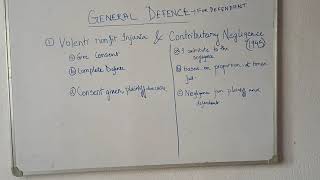 GENERAL DEFENCE → FOR DEFENDANT
① Volenti nonfit Injuria & Contributory Negligence (1945)
ⓐ Give Consent
ⓑ Complete Defence
ⓒ Consent given plaintiff
ⓐ I contribute to the negligence
ⓑ based on proportion
ⓒ Negligence from plaintiff and defendant